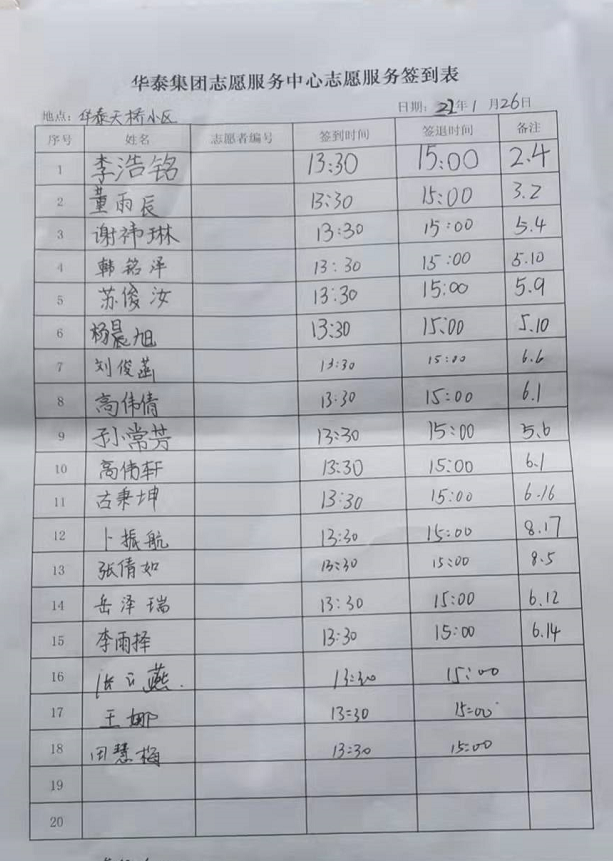 华泰集团志愿服务中心志愿服务签到表
地点: 华泰天桥小区 日期: 22年1月26日
序号 姓名 志愿者编号 签到时间 签退时间 备注
1 李浩铭 13:30 15:00 2.4
2 董雨辰 13:30 15:00 3.2
3 谢祎琳 13:30 15:00 5.4
4 韩铭泽 13:30 15:00 5.10
5 苏俊汝 13:30 15:00 5.9
6 杨晨旭 13:30 15:00 5.10
7 刘俊菡 13:30 15:00 6.6
8 高伟倩 13:30 15:00 6.1
9 孙常芳 13:30 15:00 5.6
10 高伟轩 13:30 15:00 6.1
11 古秉坤 13:30 15:00 6.16
12 卜振航 13:30 15:00 8.17
13 张倩如 13:30 15:00 8.5
14 岳泽瑞 13:30 15:00 6.12
15 李雨择 13:30 15:00 6.14
16 燕 13:30 15:00
17 王娜 13:30 15:00
18 田慧梅 13:30 15:00
19
20